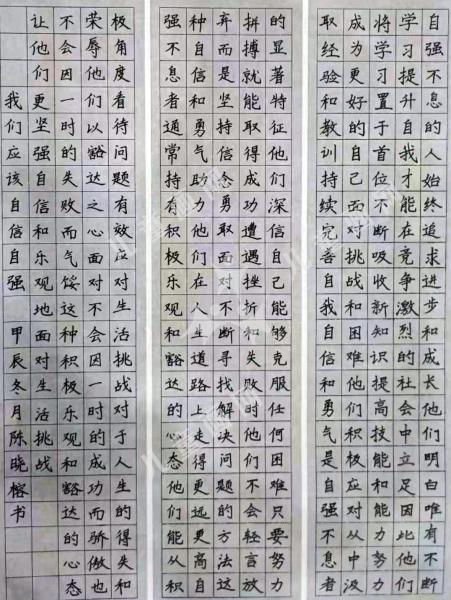 自强不息的人始终追求进步和成长他们明白唯有不断
学习提升自我才能在竞争激烈的社会中立足因此他们
将学习置于首位不断吸收新知识提高技能和能力努力
成为更好的自己面对挑战和困难他们积极应对从中汲
取经验和教训持续完善自我自信和勇气是自强不息者
的显著特征他们深信自己能够克服任何困难只要努力
拼搏就能取得成功遭遇挫折和失败时他们不会轻言放
弃而是坚持信念勇敢面对不断寻找解决问题的方法这
种自信和勇气助力他们在人生道路上走得更远更高自
强不息者通常持有积极乐观和豁达的心态他们能从积
极角度看待问题有效应对生活挑战对于人生的得失和
荣辱他们以豁达之心面对不会因一时的成功而骄傲也
不会因一时的失败而气馁这种积极乐观和豁达的心态
让他们更坚强自信和乐观地面对生活挑战
我们应该自信自强 甲辰冬月陈晓榕书